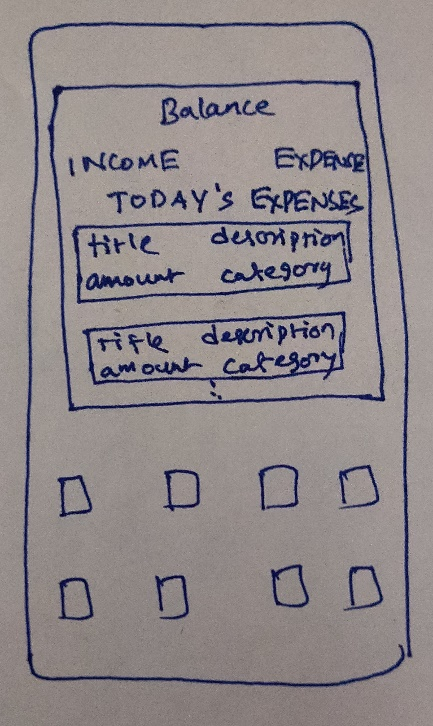 Balance
INCOME EXPENSE
TODAY'S EXPENSES
title description
amount category
title description
amount category